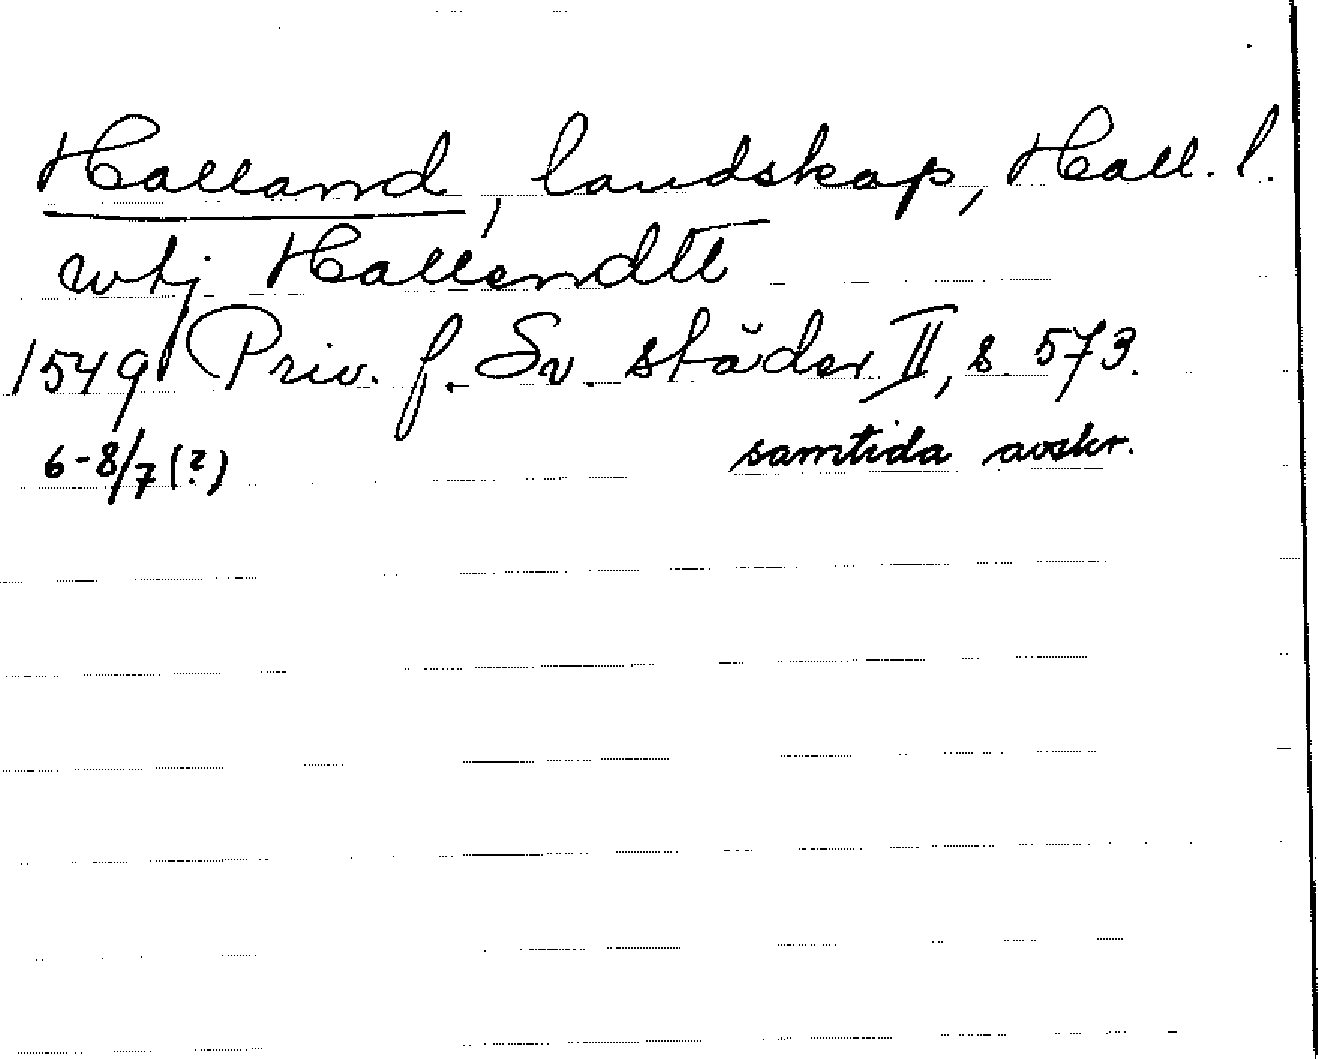 Halland, landskap, Hall. l.
wtj Hallendtt
1549 Priv. f. Sv. städer II, s. 573.
6-8/7 (?) samtida avskr.